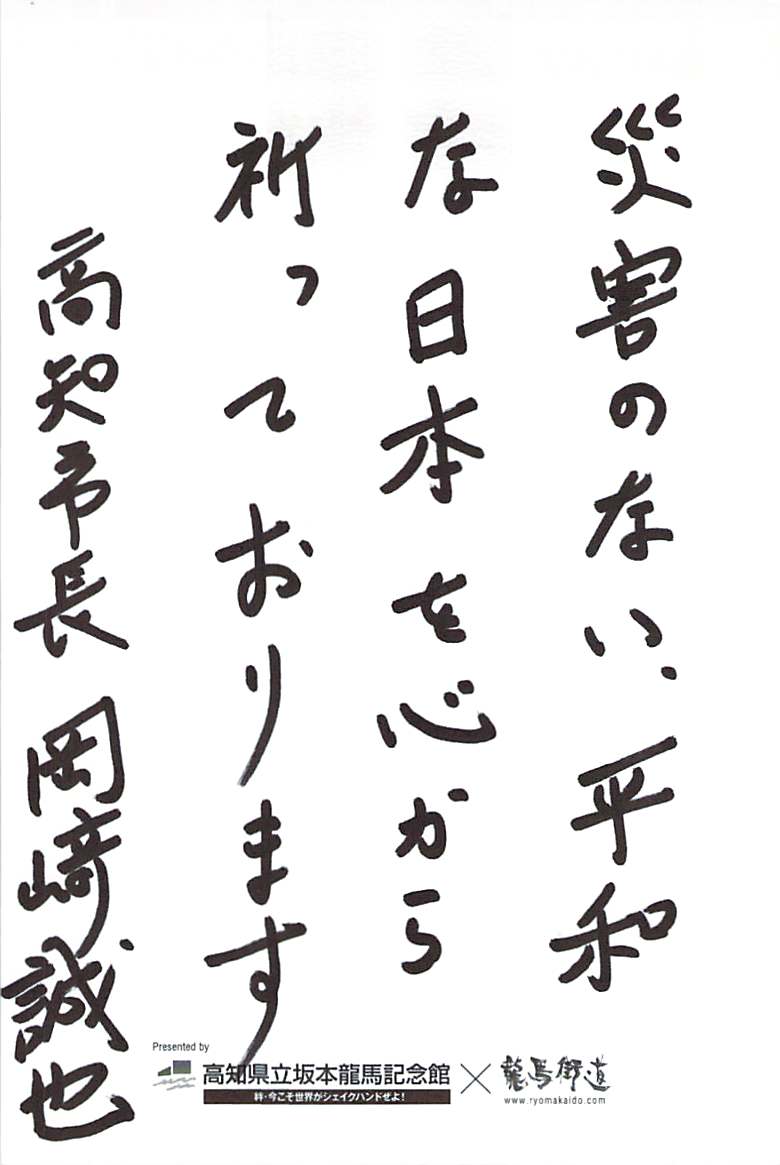 災害のない、平和
な日本を心から
祈っております
高知市長 岡﨑誠也
Presented by
高知県立坂本龍馬記念館 × 龍馬街道
絆・今こそ世界がシェイクハンドせよ！
www.ryomakaido.com